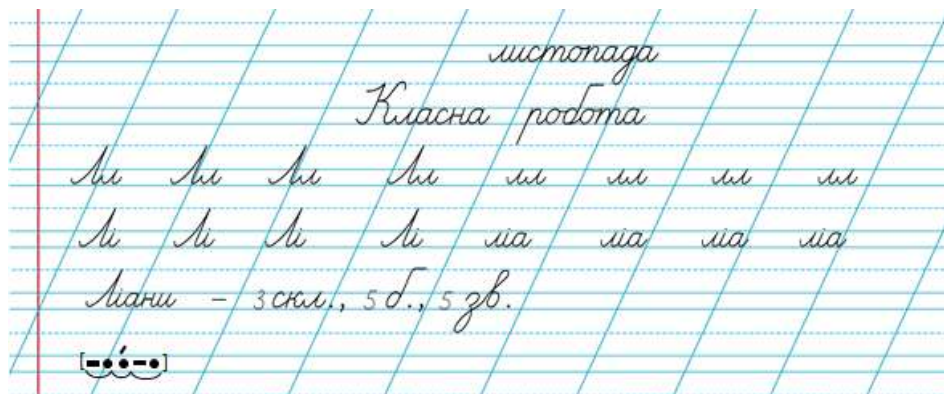 листопада
Класна робота
Лл Лл Лл Лл лл лл лл лл
Лі Лі Лі Лі ліа ліа ліа ліа
Ліани – 3 скл., 5 б., 5 зв.
[–••́–•]